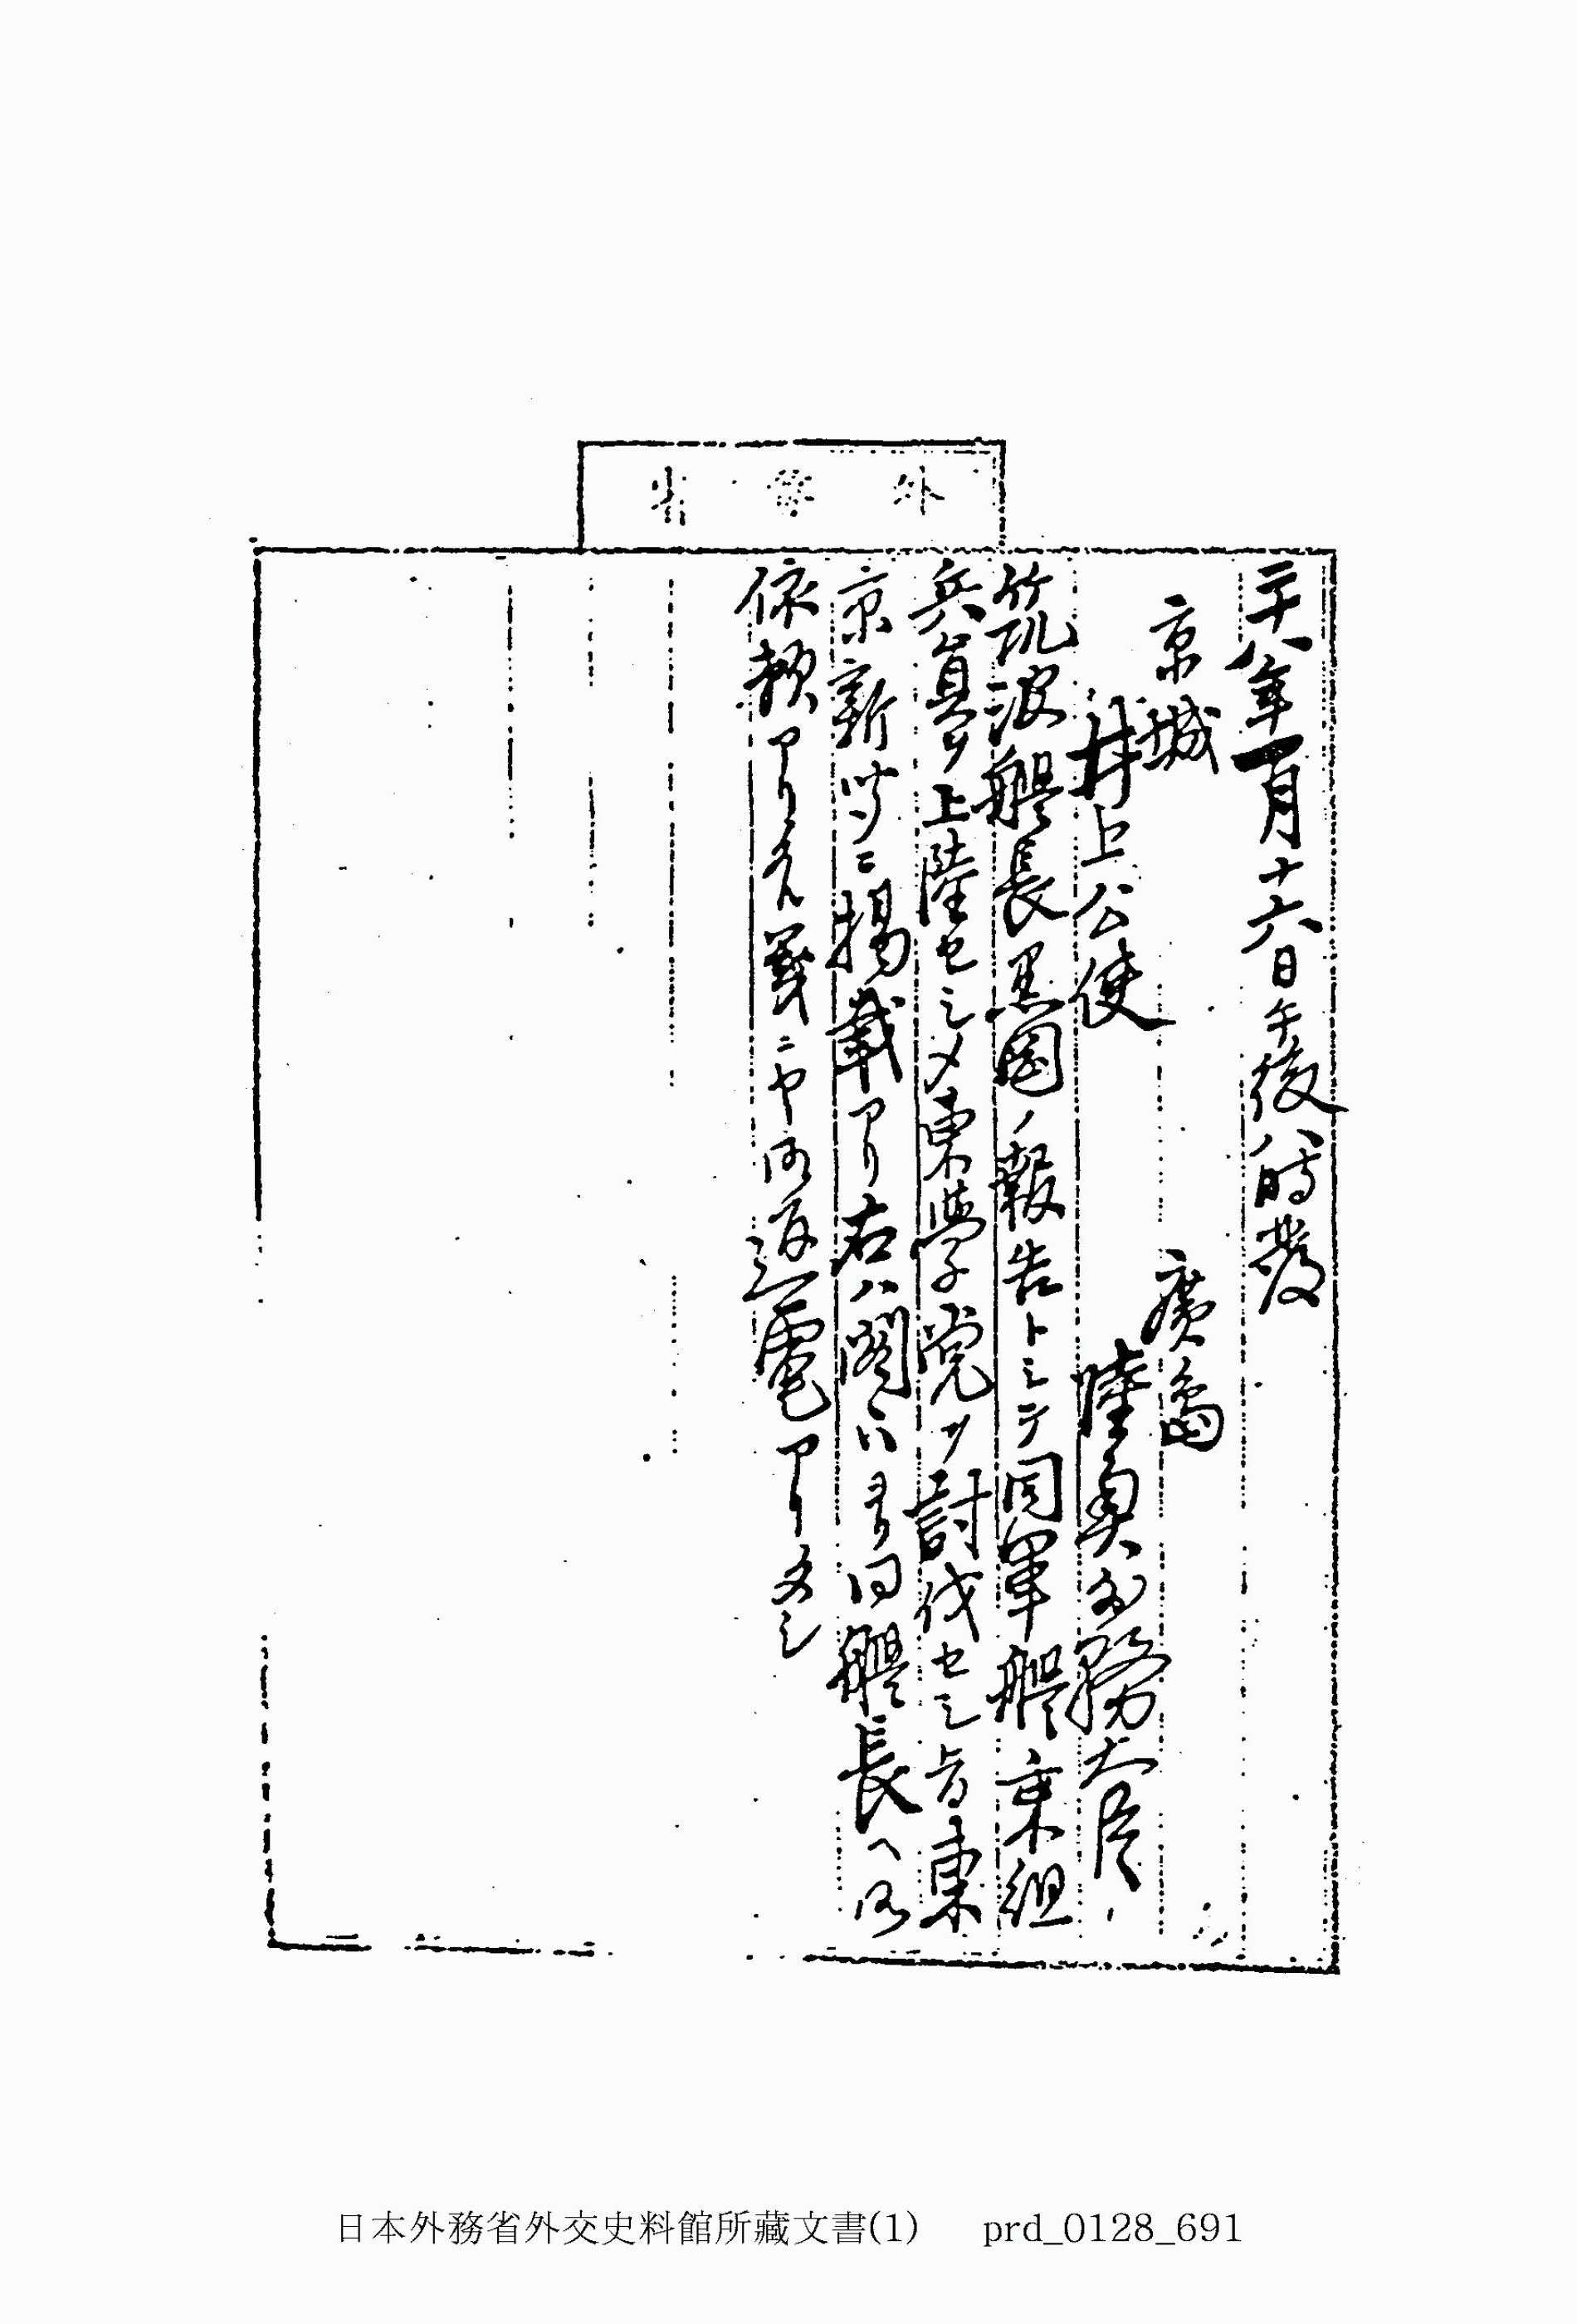 外務省
二十八年一月十六日午後八時發
京城　廣島
井上公使　陸奥外務大臣
筑波艦長黒岡ノ報告トシテ同軍艦乗組
兵員ヲ上陸セシメ東学党ヲ討伐セシ旨東
京新聞ニ掲載アリ右ハ閣下ヨリ同艦長ヘ御
依頼アリタル義ニヤ御返電アリタシ
日本外務省外交史料館所藏文書(1)　prd_0128_691